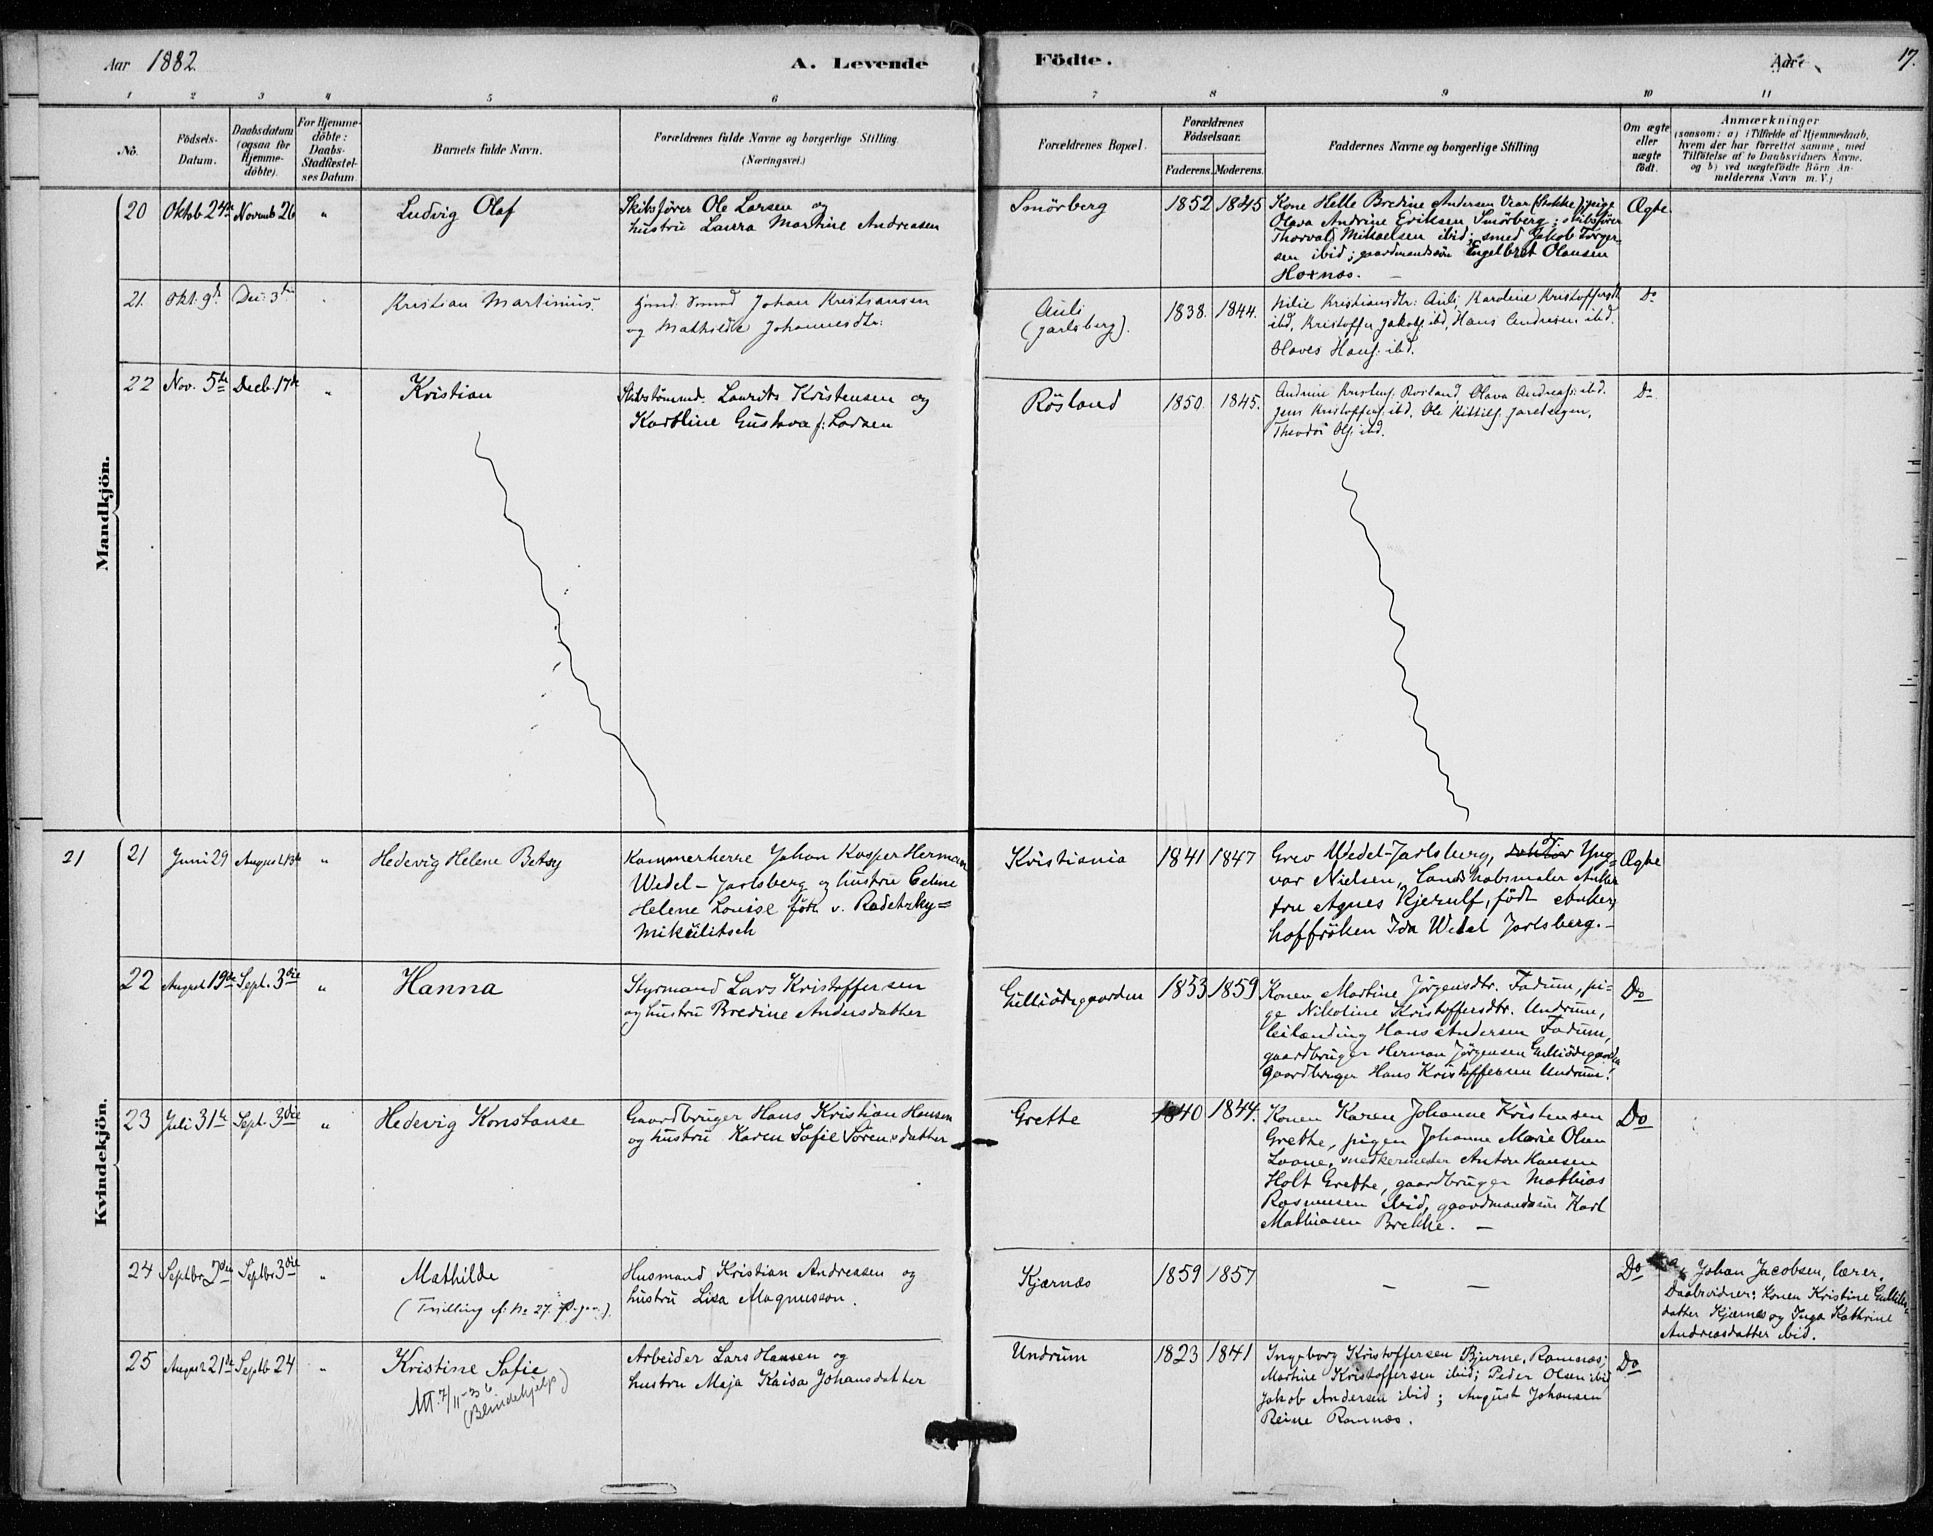 Aar 1882. A. Levende Födte. Aar 17.
1 2 3 4 5 6 7 8 9 10 11
No. Födsels-Datum. Daabsdatum (ogsaa for Hjemme-döbte). For Hjemme-döbte: Daabs-Stadfæstel-ses Datum. Barnets fulde Navn. Forældrenes fulde Navne og borgerlige Stilling. (Næringsvei.) Forældrenes Bopæl. Forældrenes Födselsaar. Faderens. Moderens. Faddernes Navne og borgerlige Stilling Om ægte eller uægte födt. Anmærkninger
(saasom: a) i Tilfælde af Hjemmedaab,
hvem der har forrettet samme, med
Tilföielse af to Daabsvidners Navne,
og b) ved uægtefödte Börn An-
melderens Navn m.V.)
Mandkjön.
20 Oktob 24de Novemb 26 " Ludvig Olaf
Skibsfører Ole Larsen og
hustru Laura Martine Andreasen
Smörberg 1852 1845
Kone Helle Bredine Andersen Vear (Stokke); pige
Olava Andrine Eriksen Smörberg; skibsfører
Thorvald Mikaelsen ibid; smed Jakob Törger-
sen ibid; gaardmandssön Engelbret Olausen
Hoxnæs. —
Ægte
21. Okt. 9de Dec. 3die " Kristian Martinius.
Gmd. Smed Johan Kristiansen
og Mathilde Johannesdtr.
Auli
(Jarlsberg).
1838. 1844.
Kristiansdtr. Auli Karoline Kristoffersdtr
ibd, Kristoffer Jakobs. ibd, Hans Andresen ibd.
Olaves Hans. ibd.
Do
22 Nov. 5te Decb. 17de " Kristian
Skibstömmd. Laurits Kristensen og
Karoline Gustava f. Larsen
Rösland 1850. 1845.
Rösland, Olava Andreas. ibd.
Jens Kristoffers. ibd, Ole
Theodor Ols. ibd.
Do
Kvindekjön.
21 21 Juni 29 August 13de " Hedevig Helene Betsy
Kammerherre Johan Kasper Herman
Wedel-Jarlsberg og hustru Celine
Helene Louise født v. Radetzky=
Mikulitsch
Kristiania 1841 1847
Grev Wedel-Jarlsberg, doktor Yng=
var Nielsen, Landskabsmaler Anker
fru Agnes Kjerulf, født Anker,
hoffrøken Ida Wedel Jarlsberg.—
Ægte
22 August 19de Sept. 3die " Hanna
Styrmand Lars Kristoffersen
og hustru Bredine Andersdatter
Gulliödegaarden 1853 1859
Konen Martine Jørgensdtr. Fadum, pi-
ge Nikoline Kristoffersdtr. Undrum,
leilænding Hans Andersen Fadum,
gaardbruger Herman Jørgensen Gulliödegaarden
gaardbruger Hans Kristoffersen Undrum.
Do
23 Juli 31te Sept. 3die " Hedevig Konstanse
Gaardbruger Hans Kristian Hansen
og hustru Karen Sofie Sørensdatter
Grette 1840 1844.
Konen Karen Johanne Kristensen
Grette, pigen Johanne Marie Olsen
Laane, snedkermester Anton Hansen
Holt Grette, gaardbruger Mathias
Rasmussen ibid, gaardmandssøn Karl
Mathiasen Brekke. —
Do
24 Septbr 2den Septbr 3die " Mathilde
(Tvilling cf. No 27. p.)
Husmand Kristian Andreasen og
hustru Lisa Magnusson.
Kjærnæs 1859 1857 — —
Do
Johan Jacobsen, lærer.
Daabsvidner: Konen Kristine
datter Kjærnæs og Inga Kathrine
Andreasdatter ibid.
25 August 21de Septb 24 " Kristine Sofie
Att. 7/11-36
(Blindehjelp)
Arbeider Lars Hansen og
hustru Maja Kaisa Johansdatter
Undrum 1823 1841
Ingeborg Kristoffersen Bjerne, Ramnæs;
Martine Kristoffersen ibid; Peder Olsen ibid
Jakob Andersen ibid; August Johansen
Reine Ramnæs.
Do